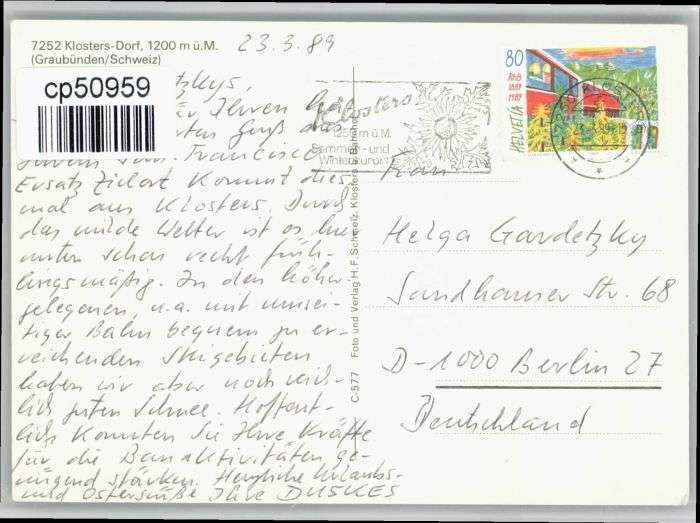 7252 Klosters-Dorf, 1200 m ü.M.
(Graubünden/Schweiz)
23.3.89
cp50959
tzkys,
für Ihren
ten Gruß aus
San Francisco
Ersatz Zielort kommt dies-
mal aus Klosters. Durch
das milde Wetter ist es hier
unten schon recht früh-
lingsmäßig. In den höher
gelegenen, u.a. mit umsei-
tiger Bahn bequem zu er-
reichenden Skigebieten
haben wir aber noch reich-
lich guten Schnee. Hoffent-
lich konnten Sie Ihre Kräfte
für die Bauaktivitäten ge-
nügend stärken. Herzliche Urlaubs-
und Ostergrüße Ihre DUSKES
C-577 Foto und Verlag H.F. Schweiz, Klosters Bahnhof
Klosters
1250 m ü.M.
Sommer- und
Winterkurort
80
RhB
1889
1989
HELVETIA
Frau
Helga Gardetzky
Sandhauser Str. 68
D-1000 Berlin 27
Deutschland